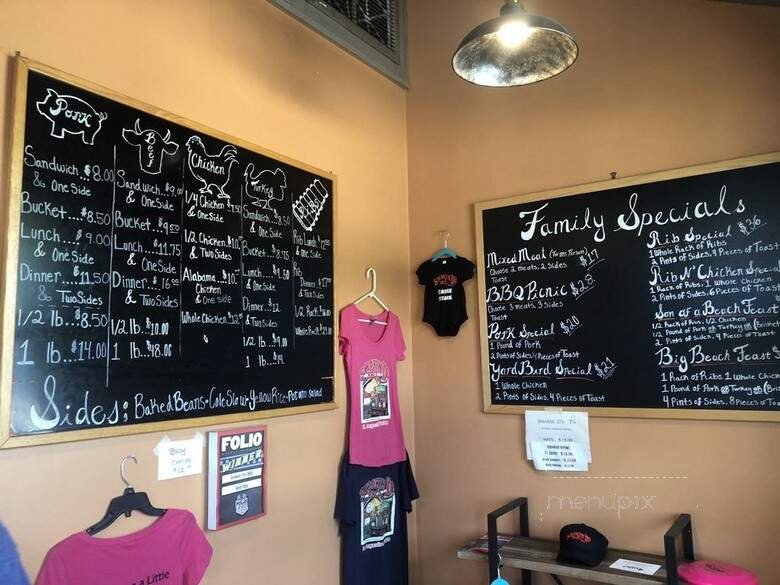 Pork
Sandwich...$8.00
& One Side
Bucket...$8.50
Lunch...$9.00
& One Side
Dinner...11.50
& Two Sides
1/2 lb...$8.50
1 lb...$14.00
Beef
Sandwich...$9.00
& One Side
Bucket...$9.50
Lunch...$11.75
& One Side
Dinner...$16.00
& Two Sides
1/2 lb...$10.00
1 lb...$18.00
Chicken
1/4 Chicken
& One Side
1/2 Chicken
& Two Sides
Alabama
Chicken
& One Side
Whole Chicken
Turkey
Sandwich...$8.50
& One Side
Bucket...$8.75
Lunch...$9.50
& One Side
Dinner...$12
& Two Sides
1/2 lb...$9
1 lb...
Rib Lunch
& One Side
Rib
Dinner...$17
& Two Sides
1/2 Rack
Whole Rack
Sides: Baked Beans • Cole Slaw • Yellow Rice • Potato Salad
Family Specials
Mixed Meat (Two Person) $17
Choose 2 meats, 2 Sides
Toast
BBQ Picnic $28
Choose 3 meats, 3 Sides
Toast
Pork Special $20
1 Pound of Pork
2 Pints of Sides, 4 Pieces of Toast
Yard Bird Special $21
1 Whole Chicken
2 Pints of Sides, 4 Pieces of Toast
Rib Special $36
1 Whole Rack of Ribs
2 Pints of Sides, 4 Pieces of Toast
Rib N' Chicken Special
1 Rack of Ribs, 1 Whole Chicken
2 Pints of Sides, 6 Pieces of Toast
Son of a Beach Feast
1/2 Rack of Ribs, 1/2 Chicken
1/2 Pound of Pork or Turkey or
2 Pints of Sides, 4 Pieces of Toast
Big Beach Feast
1 Rack of Ribs 1 Whole Chicken
1 Pound of Pork or Turkey or
4 Pints of Sides, 8 Pieces of Toast
FOLIO
WINNER
a Little
menupix